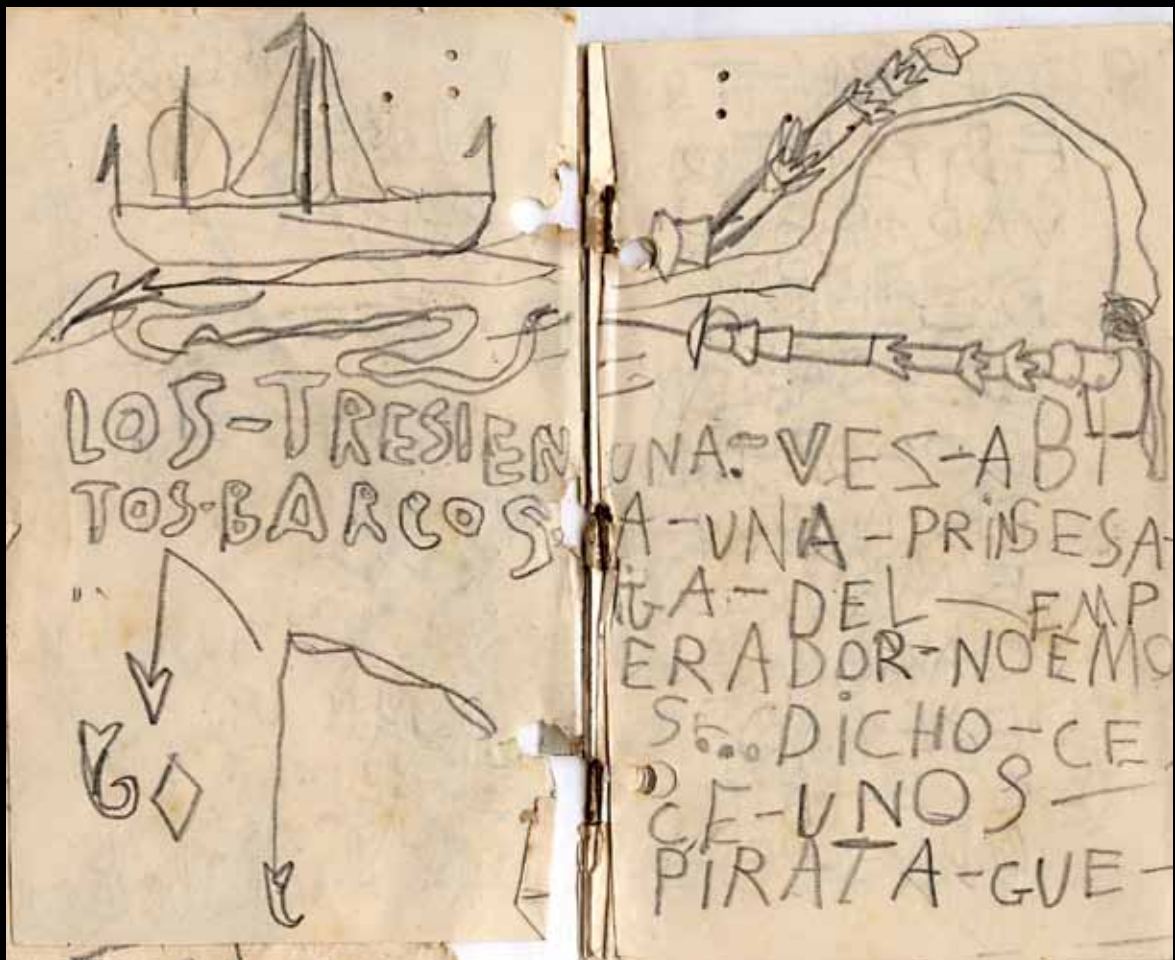 LOS-TRESIEN
TOS-BARCOS
UNA-VES-ABI
A-UNA-PRINSESA-
IGA-DEL-EMP
ERADOR-NOEMO
S... DICHO-CE
CE-UNOS-
PIRATA-GUE-